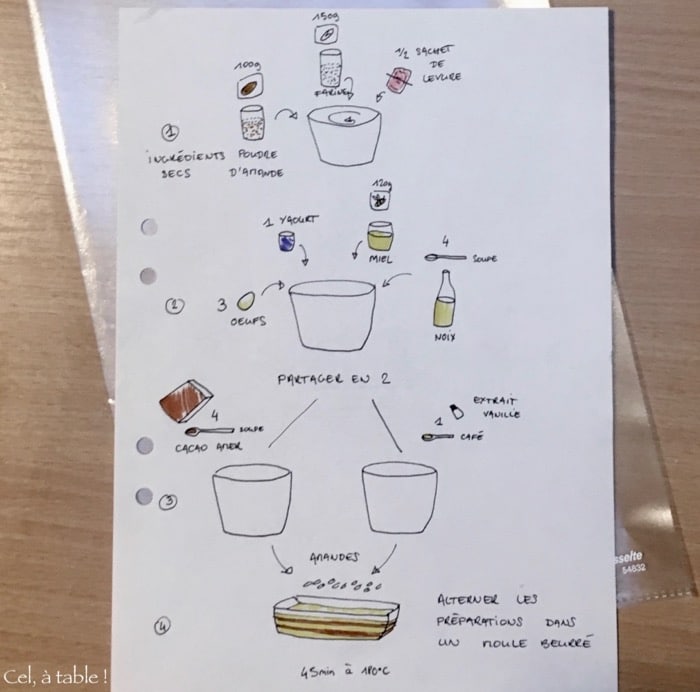 150g
100g
1/2 SACHET
DE
LEVURE
FARINE
1
INGRÉDIENTS
SECS
POUDRE
D'AMANDE
120g
1 YAOURT
MIEL
4
SOUPE
2
3
OEUFS
NOIX
PARTAGER EN 2
4
SOUPE
CACAO AMER
EXTRAIT
VANILLE
1
CAFÉ
3
AMANDES
4
ALTERNER LES
PRÉPARATIONS DANS
UN MOULE BEURRÉ
45min à 180°C
sselte
54832
Cel, à table !